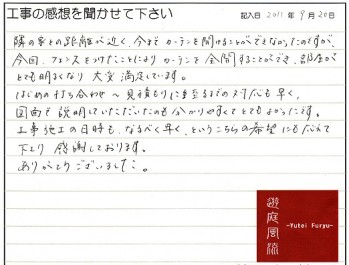 工事の感想を聞かせて下さい
記入日 2011年 9月20日
隣の家との距離が近く、今までカーテンを開けることができなかったのですが、
今回、フェンスをつけたことによりカーテンを全開することができ、部屋が
とても明るくなり大変満足しています。
はじめの打ち合わせ〜見積もりに至るまでの対応も早く、
図面で説明していただいたのも分かりやすくてとてもよかったです。
工事施工の日時も、なるべく早く、というこちらの希望にも応えて
下さり感謝しております。
ありがとうございました。
遊庭風流
-Yutei Furyu-